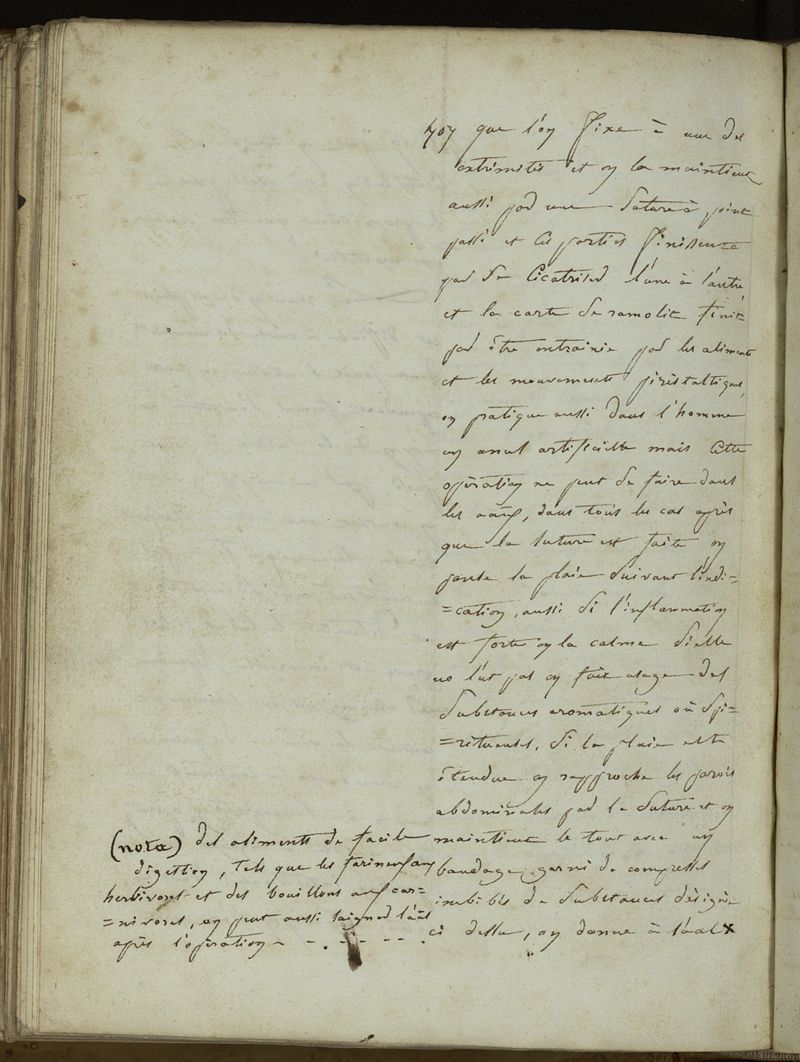 que l'on fixe à une des
extrémités et on la maintient
aussi par une suture à point
passé et ces parties finissent
par se cicatriser l'une à l'autre
et la carte se ramolit finit
par être entrainée par les aliments
et les mouvements péristaltiques,
on pratique aussi dans l'homme
un anus artificielle mais cette
opération ne peut se faire dans
les aäux, dans tous les cas après
que la suture est faite on
panse la plaie suivant l'indi=
=cation, aussi si l'inflammation
est forte on la calme si elle
ne l'est pas on fait usage des
substances aromatiques où spi=
=ritueuses, si la plaie est
étendue on rapproche les parois
abdominales par la suture et on
maintient le tout avec un
bandage garni de compresses
imbibés de substances désignée
ci dessu, on donne à l'äal x
(nota) des aliments de facile
digestion, tels que les farineux aux
herbivores et des bouillons aux car=
=nivores, on peut aussi saigner l'äal
après l'opération